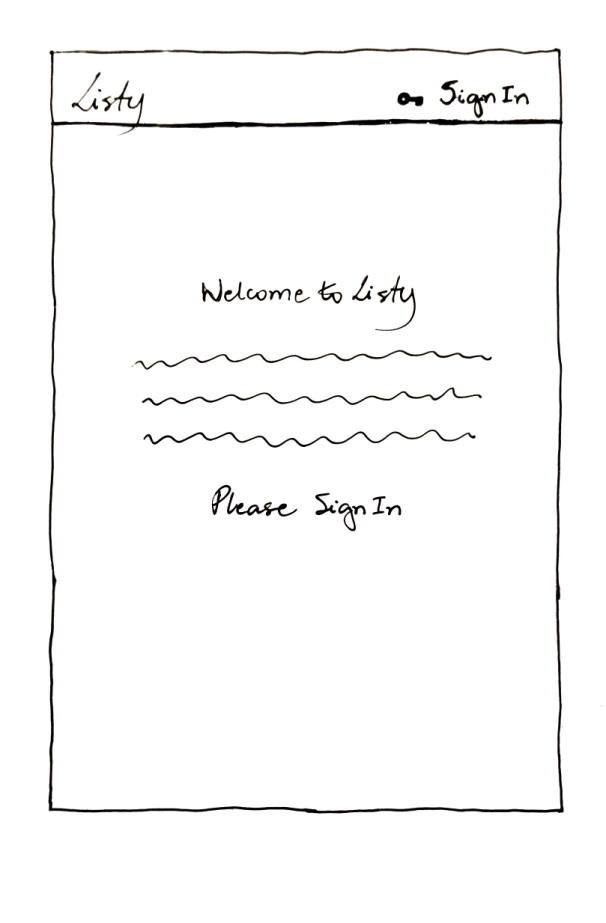 Listy
Sign In
Welcome to Listy
Please Sign In